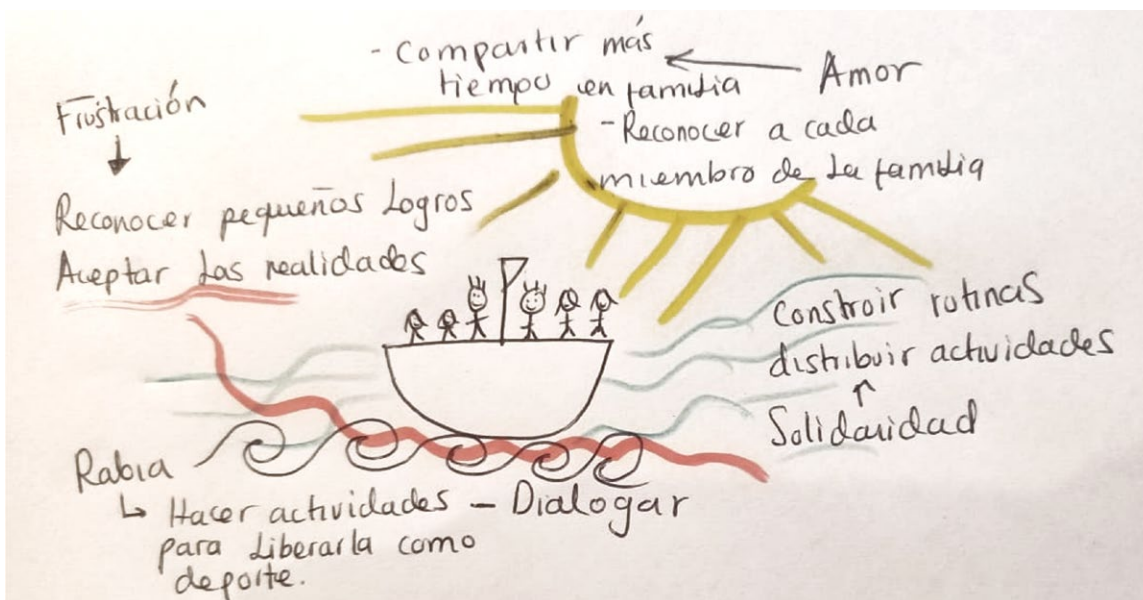 - Compartir más
tiempo en familia
Amor
- Reconocer a cada
miembro de la familia
Frustración
Reconocer pequeños logros
Aceptar las realidades
Constroir rutinas
distribuir actividades
Solidaridad
Rabia
Hacer actividades - Dialogar
para liberarla como
deporte.